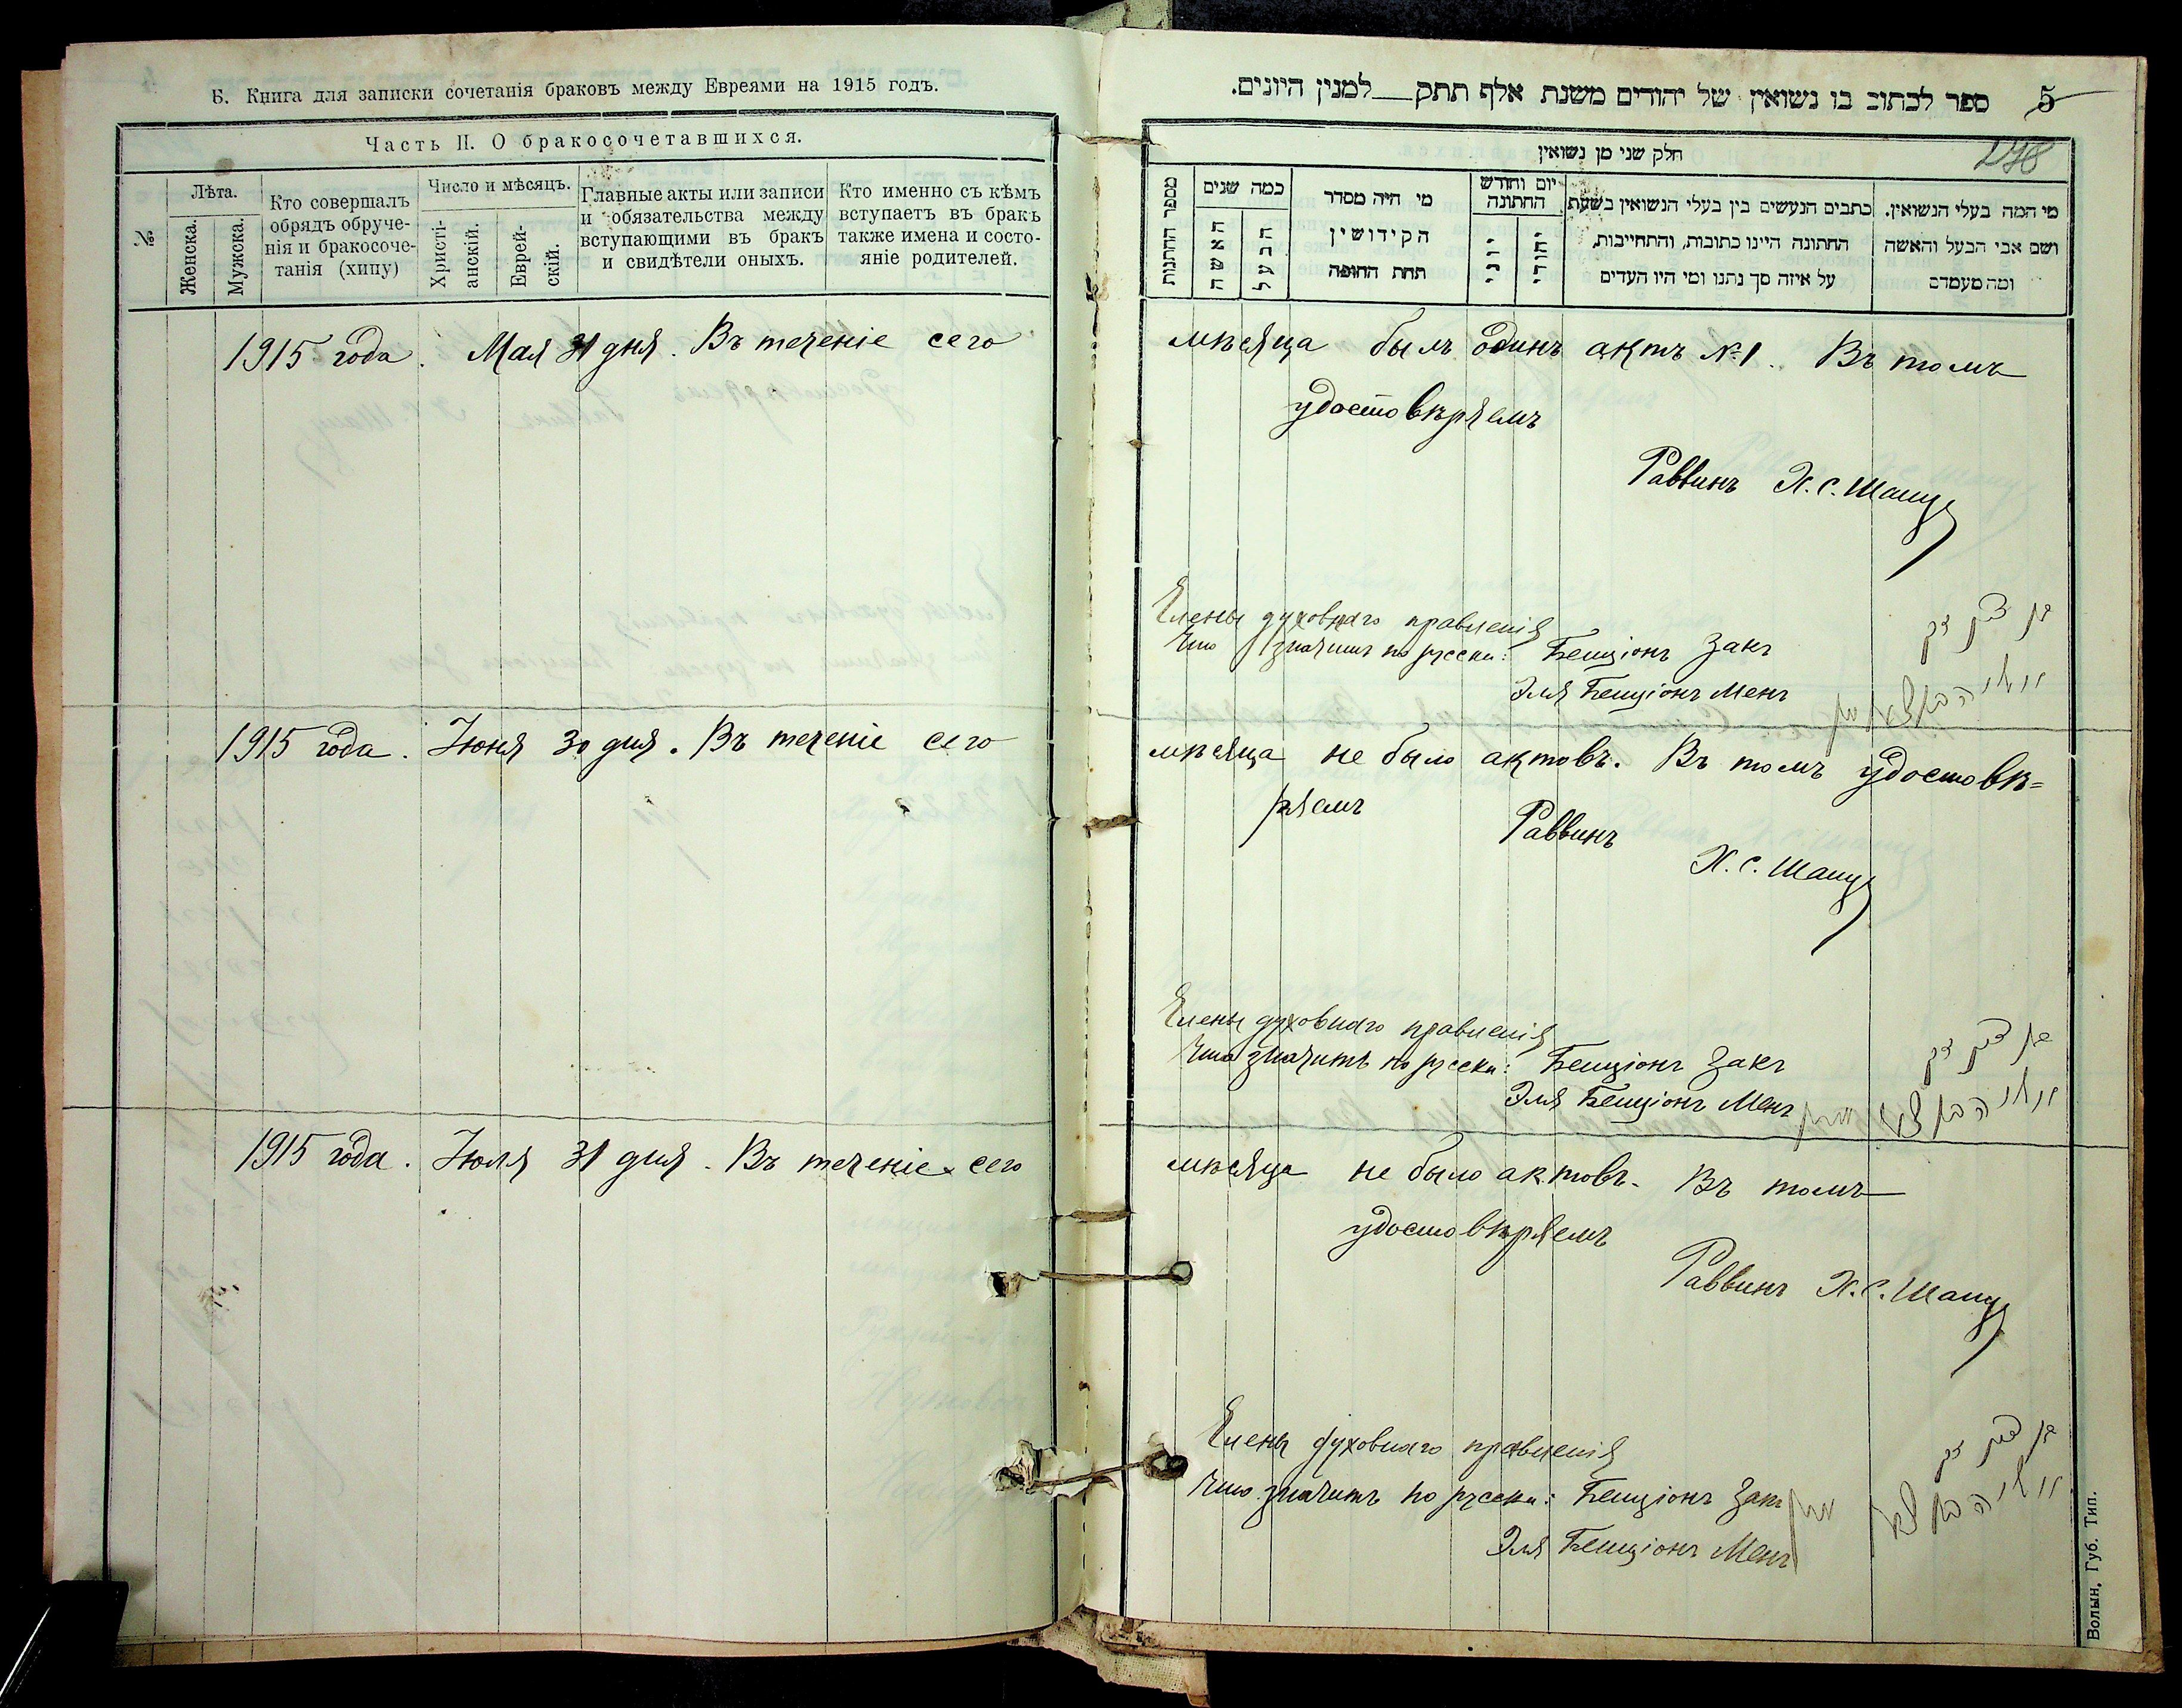 Б. Книга для записки сочетанія браковъ между Евреями на 1915 годъ.
Часть II. О бракосочетавшихся.
№
Лѣта.
Женска.
Мужска.
Кто совершалъ
обрядъ обруче-
нія и бракосоче-
танія (хипу)
Число и мѣсяцъ.
Христі-
анскій.
Еврей-
скій.
Главные акты или записи
и обязательства между
вступающими въ бракъ
и свидѣтели оныхъ.
Кто именно съ кѣмъ
вступаетъ въ бракъ
также имена и состо-
яніе родителей.
1915 года. Мая 31 дня. Въ теченіе сего
1915 года. Іюня 30 дня. Въ теченіе сего
1915 года. Іюля 31 дня. Въ теченіе сего
ספר לכתוב בו נשואין של יהודים משנת אלף תתק__למנין היונים.
5
חלק שני מן נשואין
מספר החתונות
כמה שנים
האשה
הבעל
מי היה מסדר
הקידושין
תחת החופה
יום וחודש
החתונה
יוני
יהודי
כתבים הנעשים בין בעלי הנשואין בשעת
החתונה היינו כתובות, והתחייבות,
על איזה סך נתנו ומי היו העדים
מי המה בעלי הנשואין.
ושם אבי הבעל והאשה
ומה מעמדם
мѣсяца былъ одинъ актъ №1. Въ томъ
удостовѣряемъ
Раввинъ Х. С. Шапиро
Члены духовнаго правленія
Что значитъ по русски: Бенціонъ Закъ
Эля Бенціонъ Менъ
мѣсяца не было актовъ. Въ томъ удостовѣ=
ряемъ
Раввинъ
Х. С. Шапиро
Члены духовнаго правленія
Что значитъ по русски: Бенціонъ Закъ
Эля Бенціонъ Менъ
мѣсяца не было актовъ. Въ томъ
удостовѣряемъ
Раввинъ Х. С. Шапиро
Члены духовнаго правленія
Что значитъ по русски: Бенціонъ Закъ
Эля Бенціонъ Менъ
Волын. Губ. Тип.